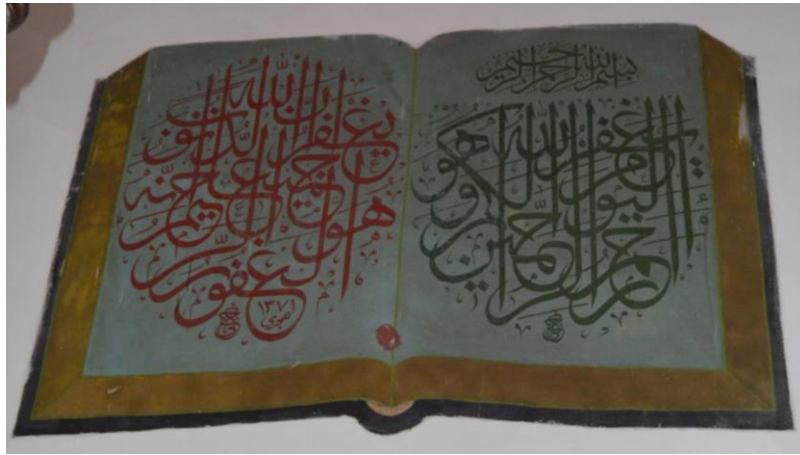 بسم الله الرحمن الرحيم
اليوم يغفر الله لكم وهو ارحم الراحمين
ان الله يغفر الذنوب جميعا انه هو الغفور الرحيم
١٣٧١